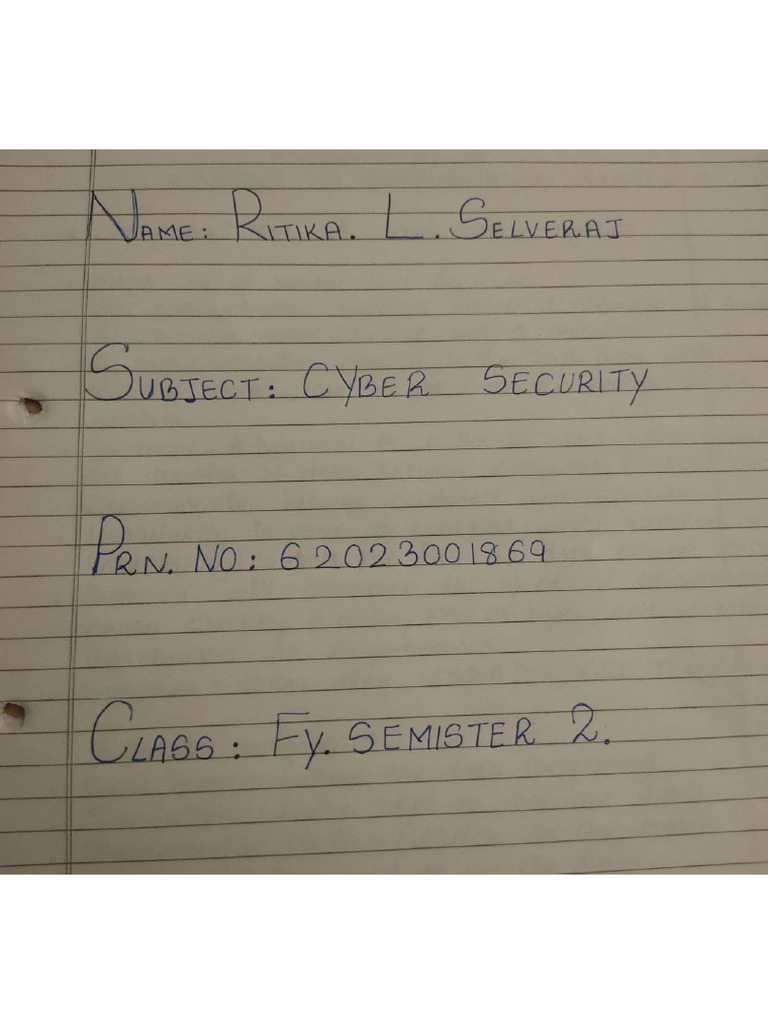 NAME: RITIKA. L. SELVERAJ
SUBJECT: CYBER SECURITY
PRN. NO: 62023001869
CLASS: Fy. SEMISTER 2.